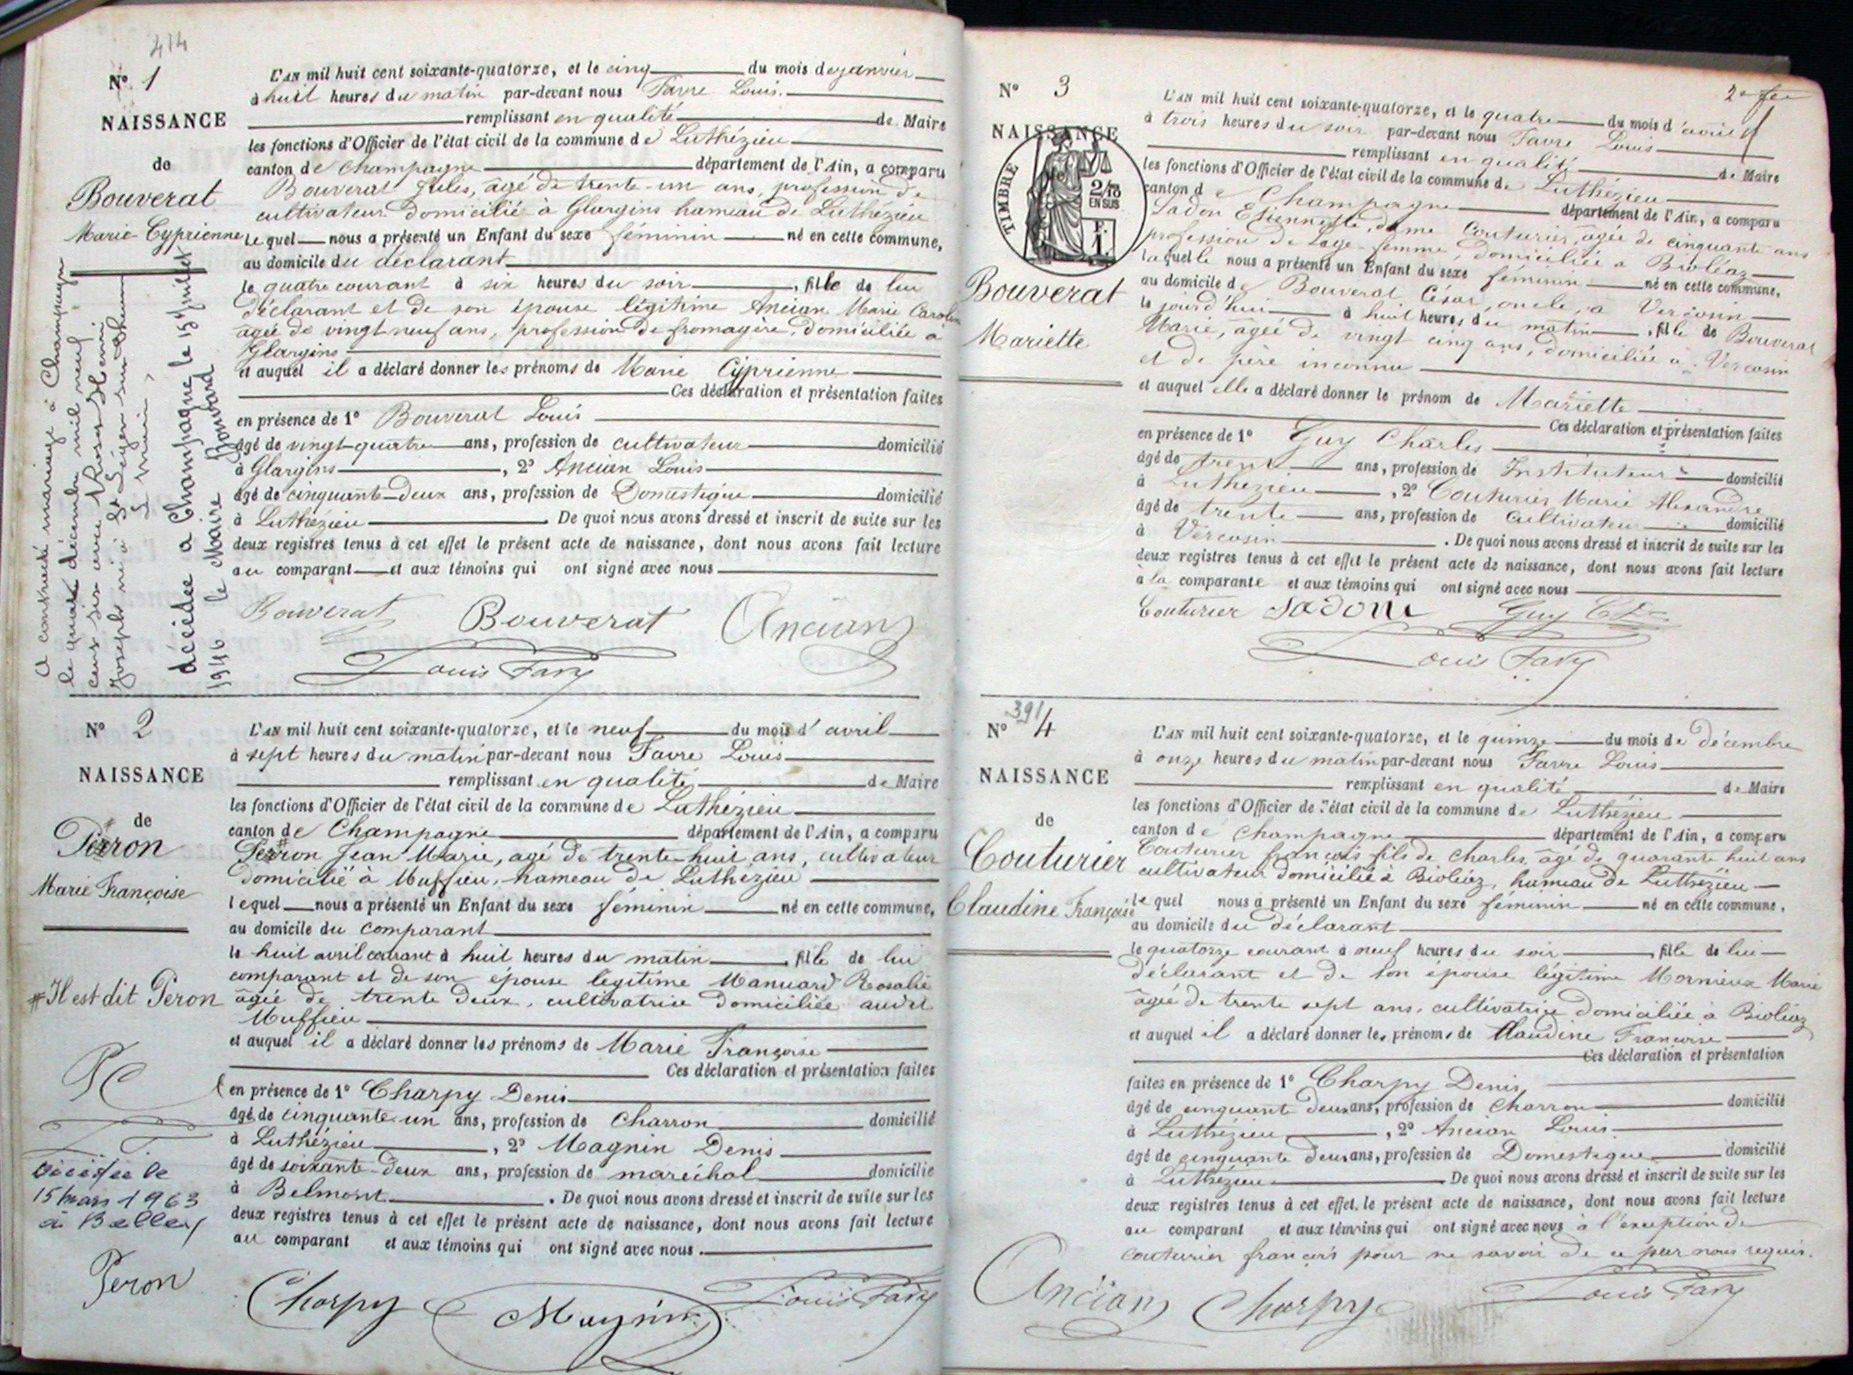 414
N° 1
NAISSANCE
de
Bouverat
Marie Cyprienne
L'AN mil huit cent soixante-quatorze, et le cinq du mois de janvier
à huit heures du matin par-devant nous Favre Louis
remplissant en qualité de Maire
les fonctions d'Officier de l'état civil de la commune de Luthézieu
canton de Champagne département de l'Ain, a comparu
Bouverat Jules, âgé de trente-un ans, profession de
cultivateur domicilié à Glargins hameau de Luthézieu
lequel nous a présenté un Enfant du sexe féminin né en cette commune,
au domicile du déclarant
le quatre courant à six heures du soir, fille de lui
déclarant et de son épouse légitime Ancian Marie
agée de vingt neuf ans, profession de fromagère, domiciliée à
Glargins
et auquel il a déclaré donner les prénoms de Marie Cyprienne
Ces déclaration et présentation faites
en présence de 1° Bouverat Louis
âgé de vingt-quatre ans, profession de cultivateur domicilié
à Glargins, 2° Ancian Louis
âgé de cinquante-deux ans, profession de Domestique domicilié
à Luthézieu. De quoi nous avons dressé et inscrit de suite sur les
deux registres tenus à cet effet le présent acte de naissance, dont nous avons fait lecture
au comparant et aux témoins qui ont signé avec nous
Bouverat Bouverat Ancian
Louis Favre
A contracté mariage à Champagne
le quinze décembre mil neuf
cent six avec
Joseph né à St
Le maire,
décédée à Champagne le 15 juillet
1946 le Maire Bouvard
N° 2
NAISSANCE
de
Perron
Marie Françoise
#Il est dit Péron
Décédée le
15 mars 1963
à Belley
Peron
L'AN mil huit cent soixante-quatorze, et le neuf du mois d'avril
à sept heures du matin par-devant nous Favre Louis
remplissant en qualité de Maire
les fonctions d'Officier de l'état civil de la commune de Luthézieu
canton de Champagne département de l'Ain, a comparu
Perron Jean Marie, agé de trente-huit ans, cultivateur
domicilié à Muffieu, hameau de Luthézieu
lequel nous a présenté un Enfant du sexe féminin né en cette commune,
au domicile du comparant
le huit avril courant à huit heures du matin, fille de lui
comparant et de son épouse légitime Manuard Rosalie
agée de trente deux, cultivatrice domiciliée audit
Muffieu
et auquel il a déclaré donner les prénoms de Marie Françoise
Ces déclaration et présentation faites
en présence de 1° Charpy Denis
âgé de cinquante-un ans, profession de charron domicilié
à Luthézieu, 2° Magnin Denis
âgé de soixante-deux ans, profession de maréchal domicilié
à Belmont. De quoi nous avons dressé et inscrit de suite sur les
deux registres tenus à cet effet le présent acte de naissance, dont nous avons fait lecture
au comparant et aux témoins qui ont signé avec nous.
Charpy Magnin Louis Favre
N° 3
NAISSANCE
TIMBRE
2/10
EN SUS
Bouverat
Mariette
L'AN mil huit cent soixante-quatorze, et le quatre du mois d'avril
à trois heures du soir par-devant nous Favre Louis
remplissant en qualité de Maire
les fonctions d'Officier de l'état civil de la commune de Luthézieu
canton de Champagne département de l'Ain, a comparu
Sadon Etiennette, dame Couturier, âgée de cinquante ans
profession de sage-femme, domiciliée à Bioléaz
laquelle nous a présenté un Enfant du sexe féminin né en cette commune,
au domicile de Bouverat César, oncle, à Vercosin
le jourd'hui à huit heures du matin, fille de Bouverat
Marie, agée de vingt cinq ans, domiciliée à Vercosin
et de père inconnu
et auquel elle a déclaré donner le prénom de Mariette
Ces déclaration et présentation faites
en présence de 1° Guy Charles
âgé de trente ans, profession de Instituteur domicilié
à Luthézieu, 2° Couturier Marie Alexandre
âgé de trente ans, profession de cultivateur domicilié
à Vercosin. De quoi nous avons dressé et inscrit de suite sur les
deux registres tenus à cet effet le présent acte de naissance, dont nous avons fait lecture
à la comparante et aux témoins qui ont signé avec nous
Couturier Sadoni Guy
Louis Favre
N° 4
391
NAISSANCE
de
Couturier
Claudine Françoise
L'AN mil huit cent soixante-quatorze, et le quinze du mois de décembre
à onze heures du matin par-devant nous Favre Louis
remplissant en qualité de Maire
les fonctions d'Officier de l'état civil de la commune de Luthézieu
canton de Champagne département de l'Ain, a comparu
Couturier françois fils de Charles, âgé de quarante huit ans
cultivateur domicilié à Bioléaz, hameau de Luthézieu
lequel nous a présenté un Enfant du sexe féminin né en cette commune,
au domicile du déclarant
le quatorze courant à neuf heures du soir, fille de lui
déclarant et de son épouse légitime Mornieux Marie
âgée de trente sept ans, cultivatrice domiciliée à Bioléaz
et auquel il a déclaré donner les prénoms de Claudine Françoise
Ces déclaration et présentation
faites en présence de 1° Charpy Denis
âgé de cinquante deux ans, profession de charron domicilié
à Luthézieu, 2° Ancian Louis
âgé de cinquante deux ans, profession de Domestique domicilié
à Luthézieu. De quoi nous avons dressé et inscrit de suite sur les
deux registres tenus à cet effet, le présent acte de naissance, dont nous avons fait lecture
au comparant et aux témoins qui ont signé avec nous à l'exception de
Couturier françois pour ne savoir de ce par nous requis.
Ancian Charpy Louis Favre